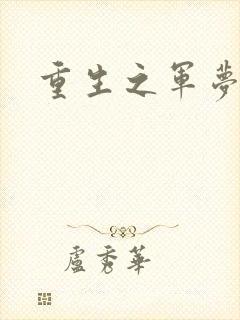 重生之軍夢
盧秀華